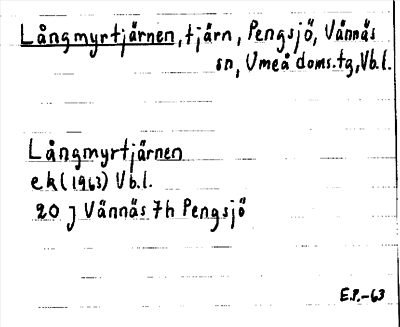 Långmyrtjärnen, tjärn, Pengsjö, Vännäs
sn, Umeå doms.tg, Vb.l.
Långmyrtjärnen
ek (1963) Vb.l.
20 J Vännäs 7h Pengsjö
E.P.-63